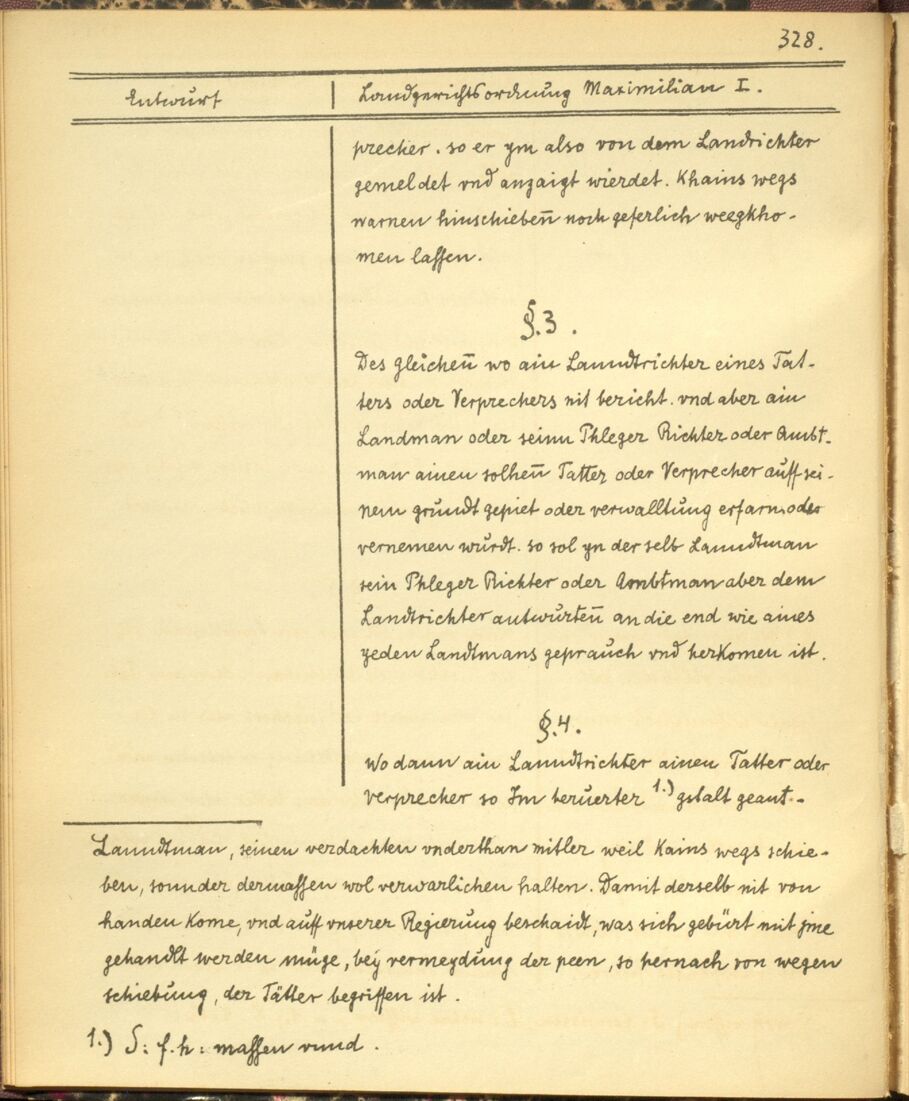 328.
Entwurf
Landgerichtsordnung Maximilian I.
precher. so er ym also von dem Landrichter
gemeldet vnd anzaigt wierdet. Khains wegs
warnen hinschiebenn̄ noch geferlich weegkho-
men lassen.
§.3.
Des gleichen̄ wo ain Lanndtrichter eines Tat-
ters oder Verprechers nit bericht. vnd aber ain
Landman oder seinn Phleger Richter oder Ambt-
man ainen solhen̄ Tatter oder Verprecher auff sei-
nem grundt gepiet oder verwalltung erfarn oder
vernemen wurdt. so sol yn der selb Lanndtman
sein Phleger Richter oder Ambtman aber dem
Landtrichter antwurten̄ an die end wie aines
yeden Landtmans geprauch vnd herkomen ist.
§.4.
Wo dann ain Lanndtrichter ainen Tatter oder
verprecher so Im beruerter 1.) gstalt geant-
Lanndtman, seinen verdachten vnderthan mitler weil Kains wegs schie-
ben, sonnder dermassen wol verwarlichen halten. Damit derselb nit von
handen Kome, vnd auff vnserer Regierung beschaidt, was sich gebürt mit jme
gehandlt werden müge, bey vermeydung der peen, so hernach von wegen
schiebung, der Tätter begriffen ist.
1.) S: f. h: massen vnnd.